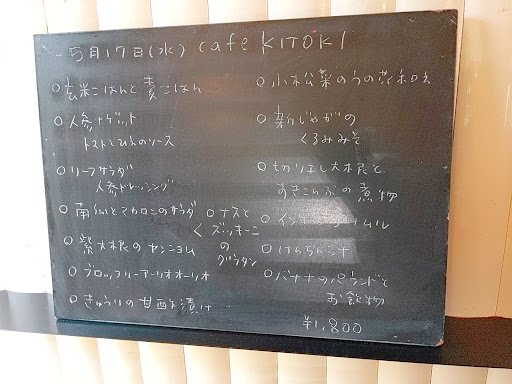 5月17日(水) cafe KITOKI
○玄米ごはんと麦ごはん
○人参ナゲット
トマトとひよこのソース
○リーフサラダ
人参ドレッシング
○南瓜とマカロニのサラダ
○紫大根のヤンニョム
○ブロッコリーアーリオオーリオ
○きゅうりの甘酒を漬け
○ナスと
ズッキーニ
の
グラタン
○小松菜のうの花和え
○新じゃがの
くるみみそ
○切り干し大根と
すきこんぶの煮物
○インゲン
○けんちん汁
○バナナのパウンドと
お飲物
¥1,800